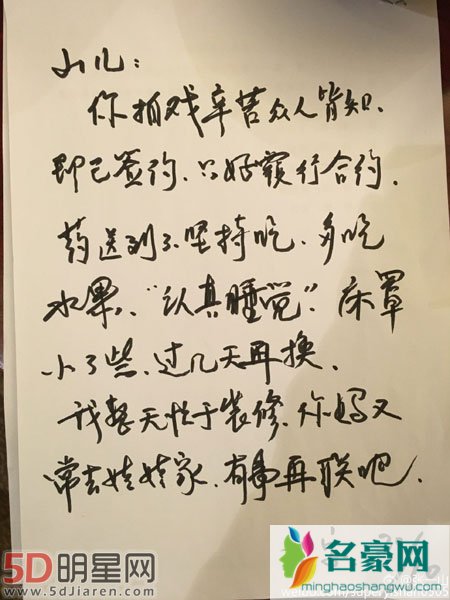 山儿:
你拍戏辛苦众人皆知.
即已签约、只好履行合约.
药送到了.坚持吃、多吃
水果、“认真睡觉”.床罩
小了些、过几天再换.
我整天忙于装修、你妈又
常去娃娃家.有事再联吧.
5D明星网
www.5dJiaren.com
名豪网
minghaoshangwu.com